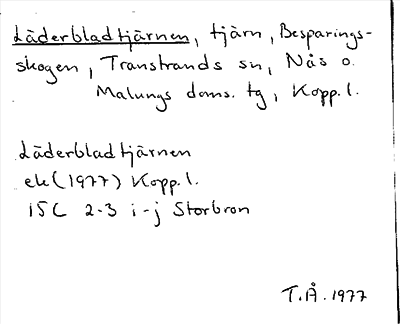 Läderbladtjärnen, tjärn, Besparings-
skogen, Transtrands sn, Nås o.
Malungs doms. tg, Kopp. l.
Läderbladtjärnen
ek (1977) Kopp. l.
15C 2-3 i-j Storbron
T.Å. 1977